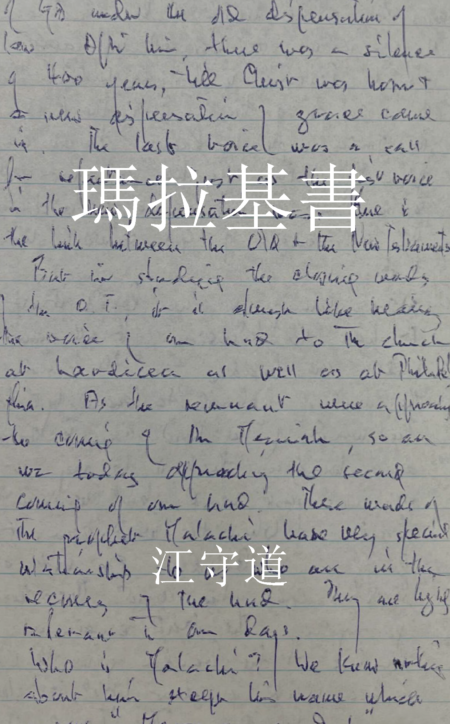 of God under the old dispensation of
law. After him, there was a silence
of 400 years, till Christ was born &
a new dispensation of grace came
in. The last voice was a call
for
瑪拉基書
in the new dispensation
the link between the Old & the New Testaments
But in studying the closing words
of the O.T., it is almost like hearing
the voice of our Lord to the church
at Laodicea as well as at Philadel
phia. As the remnant were approaching
the coming of the Messiah, so are
we today approaching the second
coming of our Lord. These words of
the prophet Malachi have very special
relationship to us who are in the
江守道
of the Lord. They are highly
relevant to our days.
Who is Malachi? We know nothing
about him except his name which